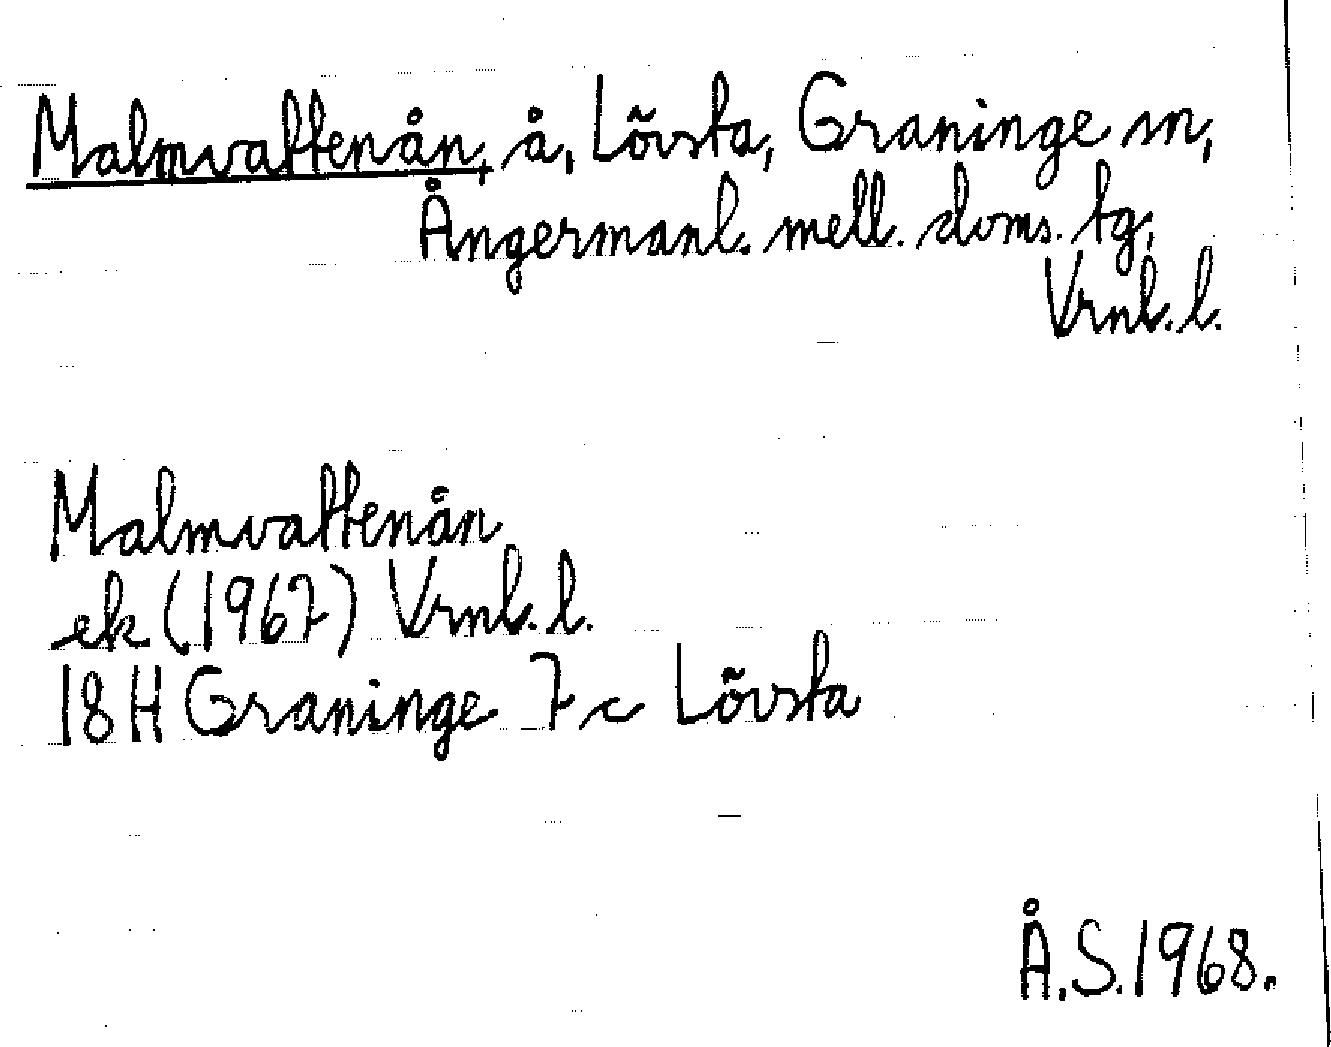 Malmvattenån, å, Lövsta, Graninge sn,
Ångermanl. mell. doms. tg,
Vrnl. l.
Malmvattenån
ek (1967) Vrnl. l.
18H Graninge 7 c Lövsta
Å.S. 1968.